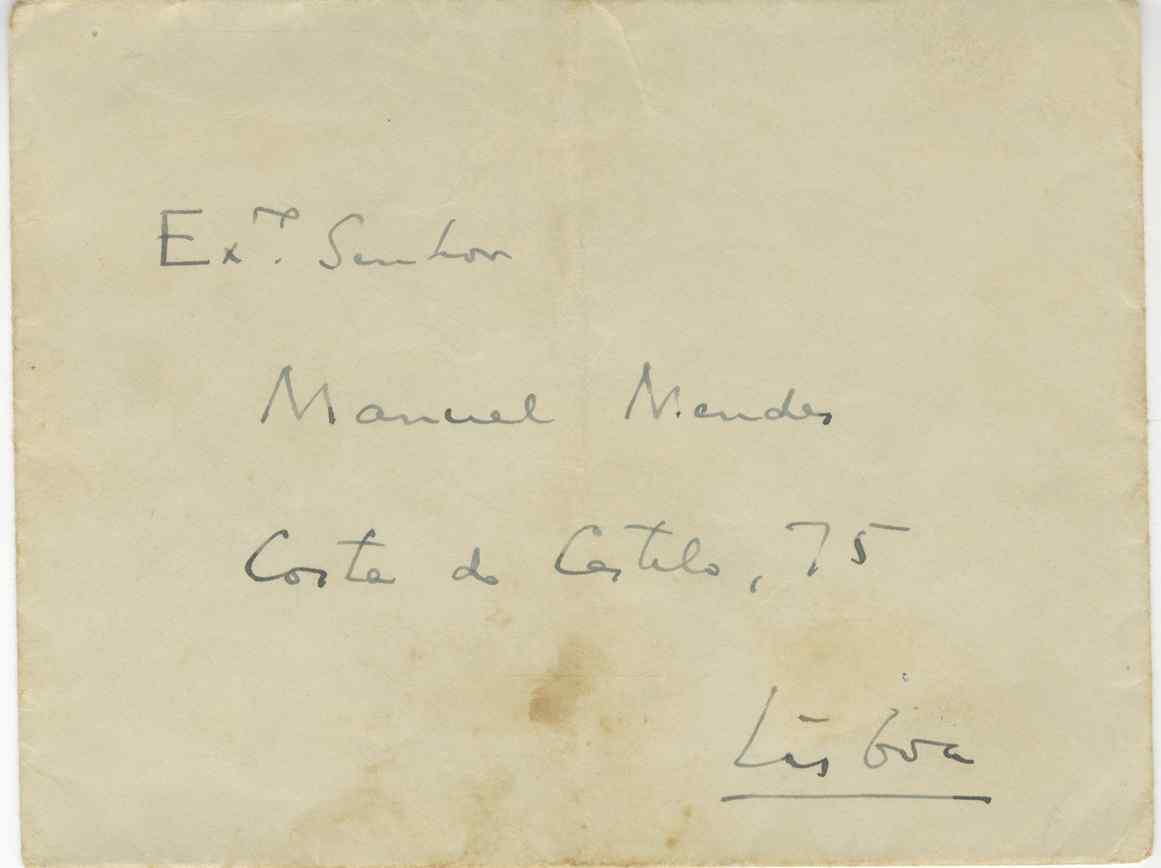 Exmo. Senhor
Manuel Mendes
Costa do Castelo, 75
Lisboa